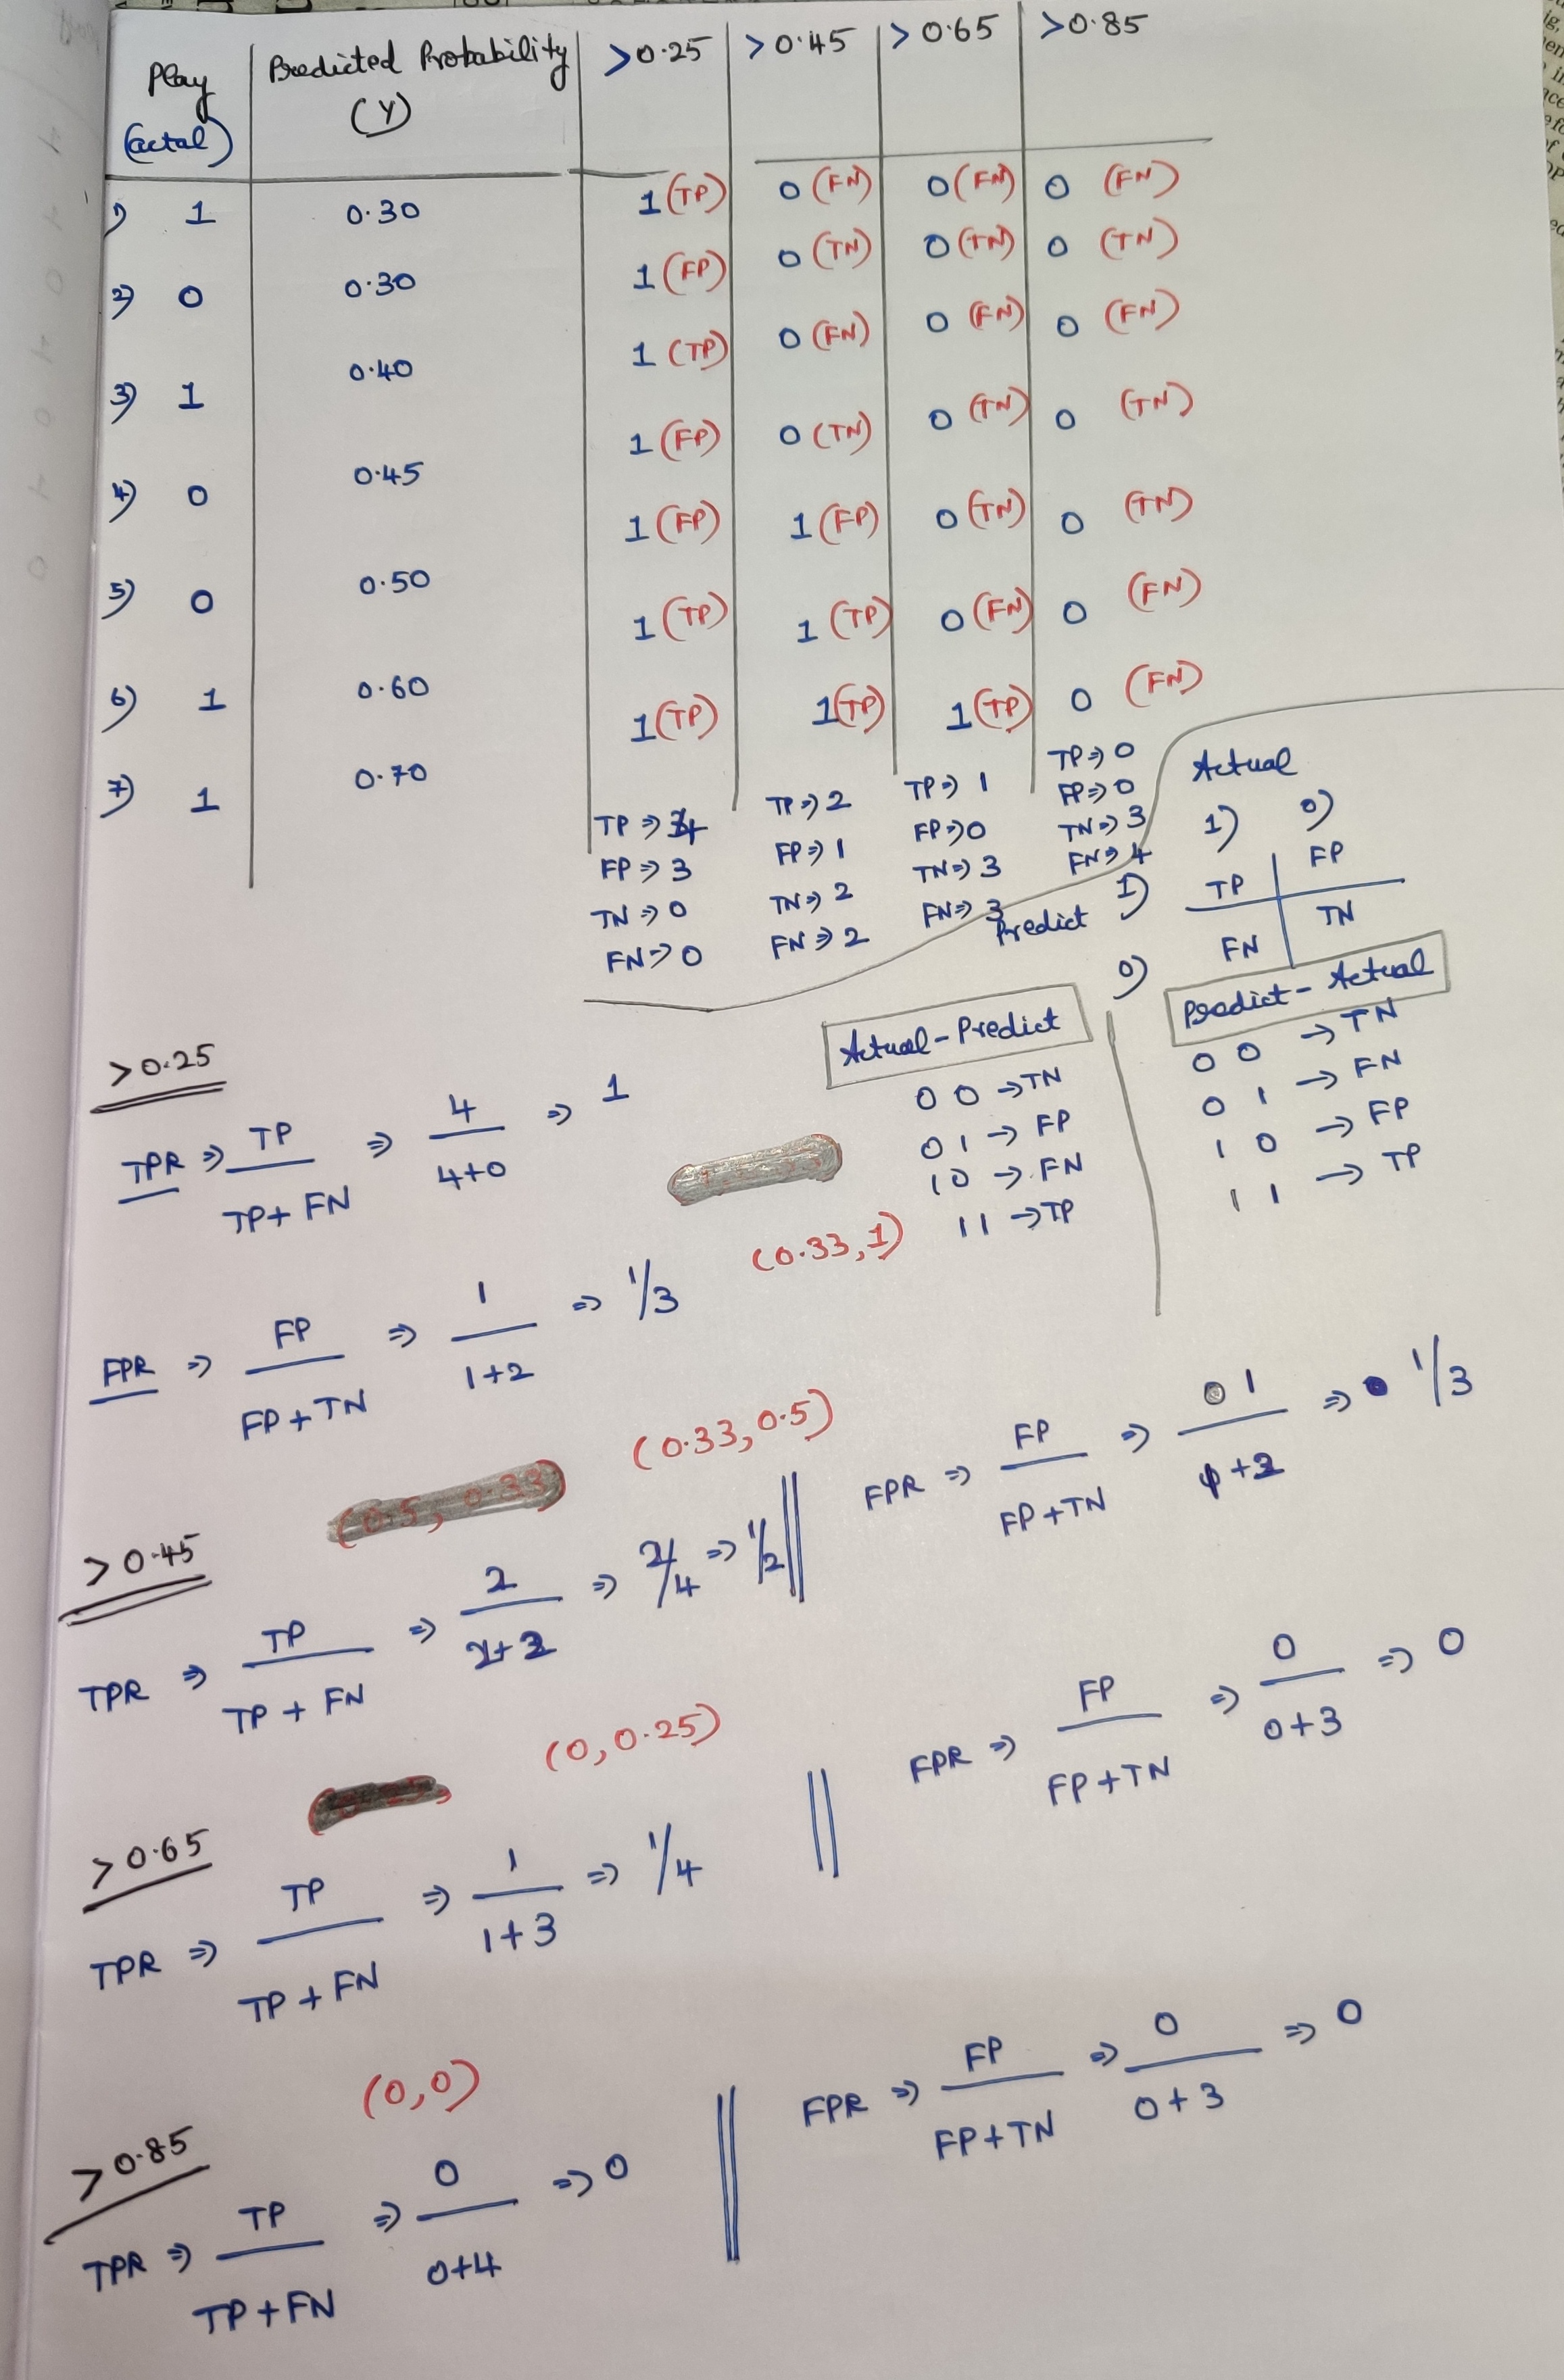 Play (actal) | Predicted Probability (Y) | >0.25 | >0.45 | >0.65 | >0.85
1) 1 0.30 1 (TP) 0 (FN) 0 (FN) 0 (FN)
2) 0 0.30 1 (FP) 0 (TN) 0 (TN) 0 (TN)
3) 1 0.40 1 (TP) 0 (FN) 0 (FN) 0 (FN)
4) 0 0.45 1 (FP) 0 (TN) 0 (TN) 0 (TN)
5) 0 0.50 1 (FP) 1 (FP) 0 (TN) 0 (TN)
6) 1 0.60 1 (TP) 1 (TP) 0 (FN) 0 (FN)
7) 1 0.70 1 (TP) 1 (TP) 1 (TP) 0 (FN)
TP => 4 TP => 2 TP => 1 TP => 0
FP => 3 FP => 1 FP => 0 FP => 0
TN => 0 TN => 2 TN => 3 TN => 3
FN => 0 FN => 2 FN => 3 FN => 4
Actual
1) 0)
Predict 1) TP FP
0) FN TN
Actual - Predict
0 0 → TN
0 1 → FP
1 0 → FN
1 1 → TP
Predict - Actual
0 0 → TN
0 1 → FN
1 0 → FP
1 1 → TP
>0.25
TPR => TP / TP + FN => 4 / 4+0 => 1
(0.33, 1)
FPR => FP / FP + TN => 1 / 1+2 => 1/3
(0.5, 0.33) (0.33, 0.5)
>0.45
TPR => TP / TP + FN => 2 / 2+2 => 2/4 => 1/2 || FPR => FP / FP + TN => 1 / 1+2 => 1/3
(0, 0.25)
>0.65
TPR => TP / TP + FN => 1 / 1+3 => 1/4 || FPR => FP / FP + TN => 0 / 0+3 => 0
(0,0)
>0.85
TPR => TP / TP + FN => 0 / 0+4 => 0 || FPR => FP / FP + TN => 0 / 0+3 => 0